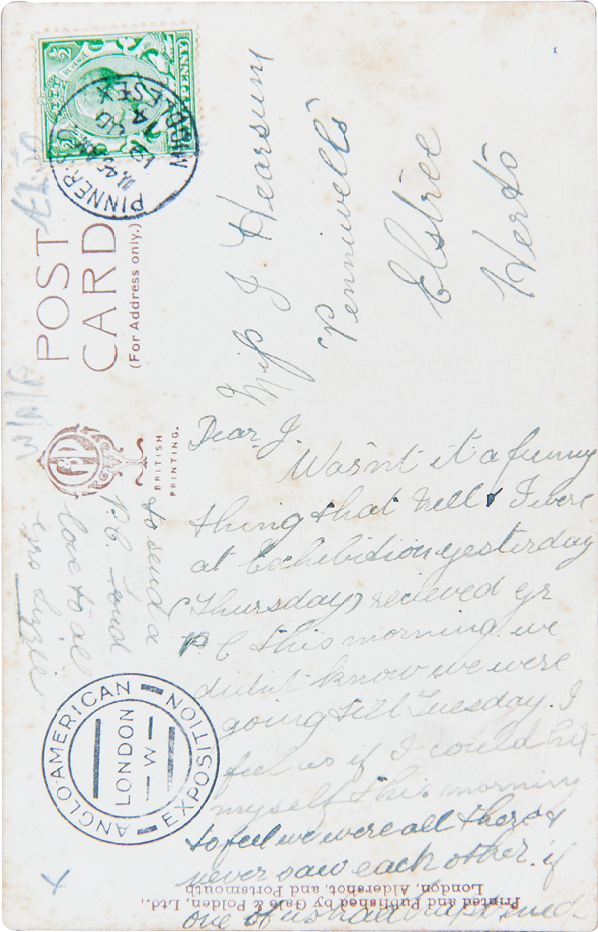 ½ REVENUE ½
PENNY
PINNER S.O.
MIDDLESEX
11.45 AM
POST
CARD
(For Address only.)
BRITISH
PRINTING.
Miss J. Hearsum
"Penniwells"
Elstree
Herts
Dear J.
Wasn't it a funny
thing that Nell & I were
at Exhibition yesterday
(Thursday) recieved yr
P.C this morning. we
didn't know we were
going till Tuesday. I
feel as if I could hit
myself this morning
to feel we were all there &
never saw each other. if
one of us had happened
to send a
P.C. fond
love to all
Lizzie
ANGLO-AMERICAN
EXPOSITION
LONDON
W
Printed and Published by Gale & Polden, Ltd.,
London, Aldershot, and Portsmouth
X